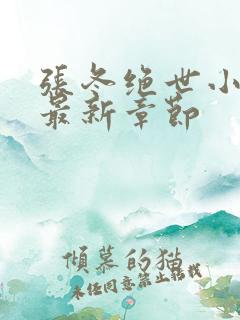 張冬绝世小
最新章節
傾慕的猫
未经同意禁止转载